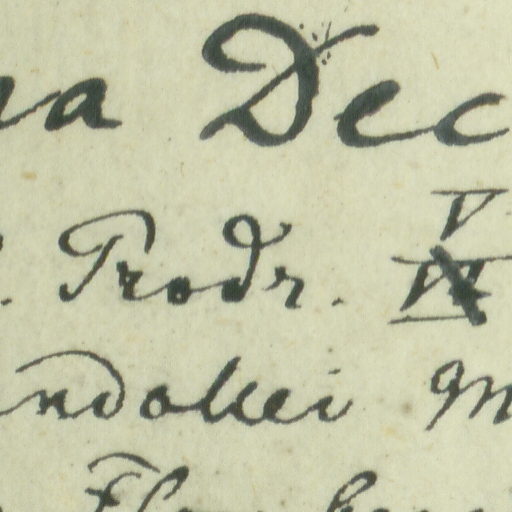 na Dec
. Prodr. V
ndollei M